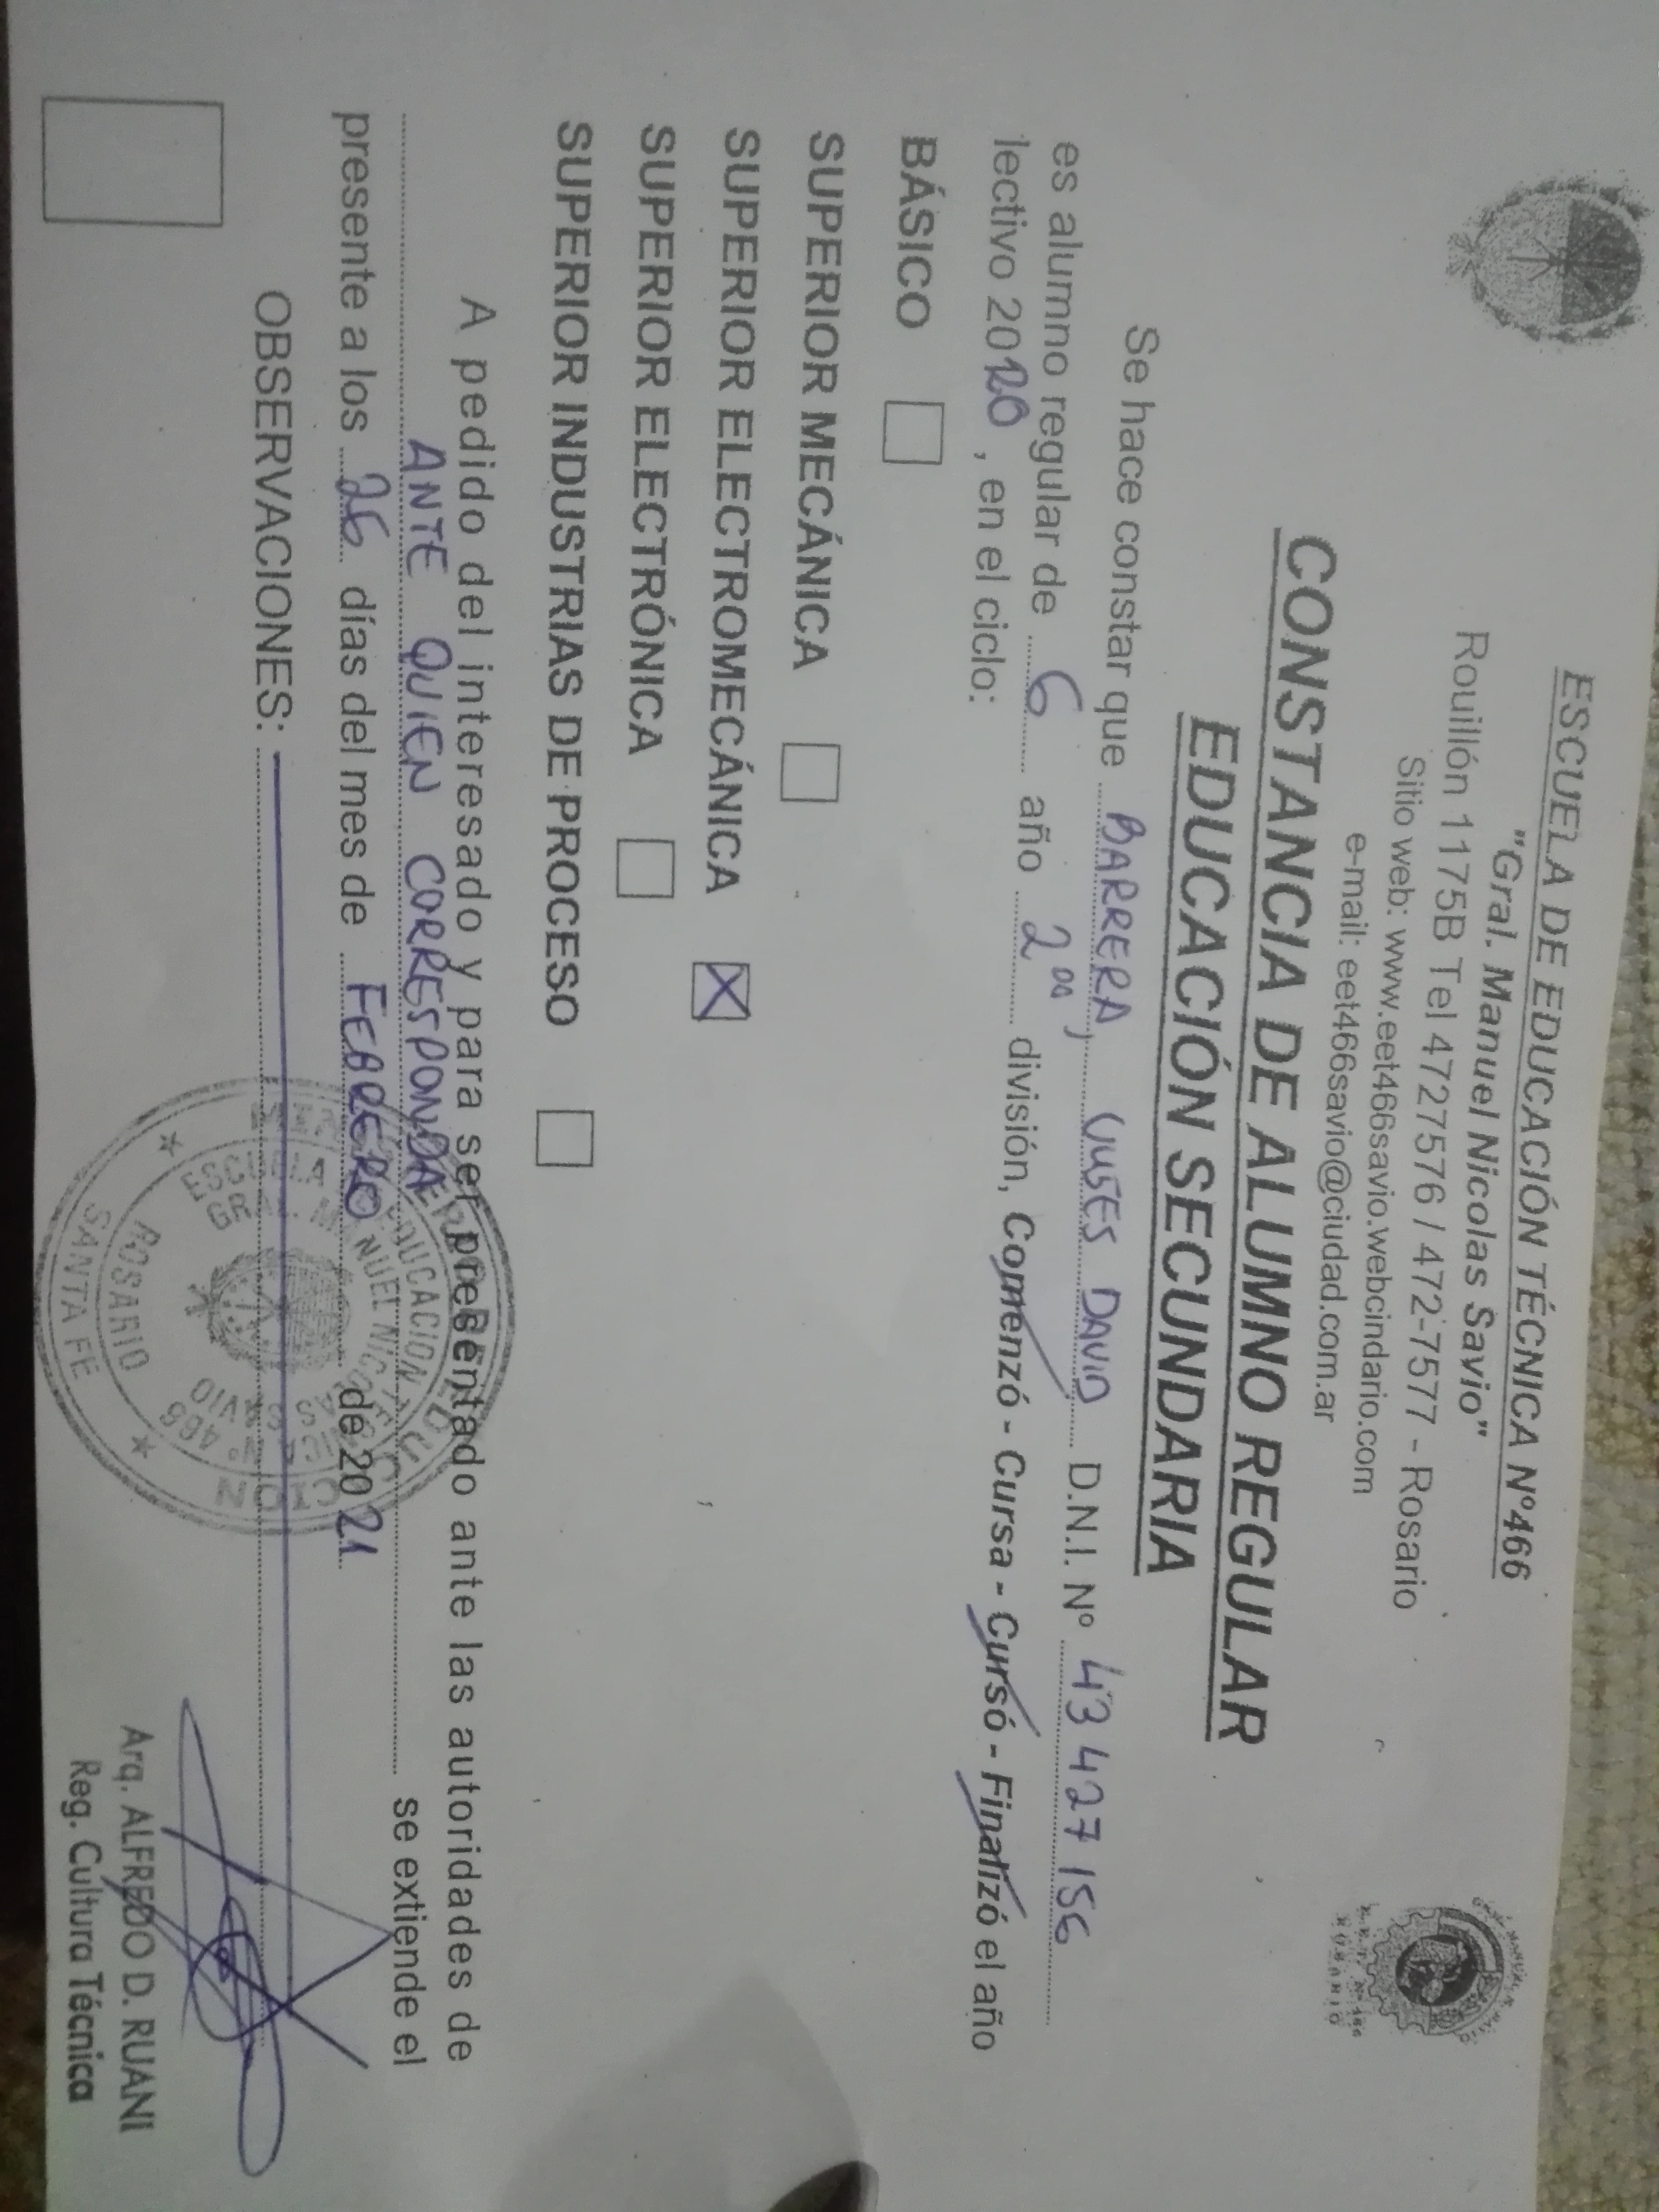 ESCUELA DE EDUCACIÓN TÉCNICA Nº466
"Gral. Manuel Nicolas Savio"
Rouillón 1175B Tel 4727576 / 472-7577 - Rosario
Sitio web: www.eet466savio.webcindario.com
e-mail: eet466savio@ciudad.com.ar
CONSTANCIA DE ALUMNO REGULAR
EDUCACIÓN SECUNDARIA
Se hace constar que BARRERA, ULISES DAVID D.N.I. Nº 43 427 156
es alumno regular de 6 año 2da división, Comenzó - Cursa - Cursó - Finalizó el año
lectivo 2020, en el ciclo:
BÁSICO
SUPERIOR MECÁNICA
SUPERIOR ELECTROMECÁNICA X
SUPERIOR ELECTRÓNICA
SUPERIOR INDUSTRIAS DE PROCESO
A pedido del interesado y para ser presentado ante las autoridades de
ANTE QUIEN CORRESPONDA se extiende el
presente a los 26 días del mes de FEBRERO de 2021
OBSERVACIONES:
ROSARIO
SANTA FE
Arq. ALFREDO D. RUANI
Reg. Cultura Técnica